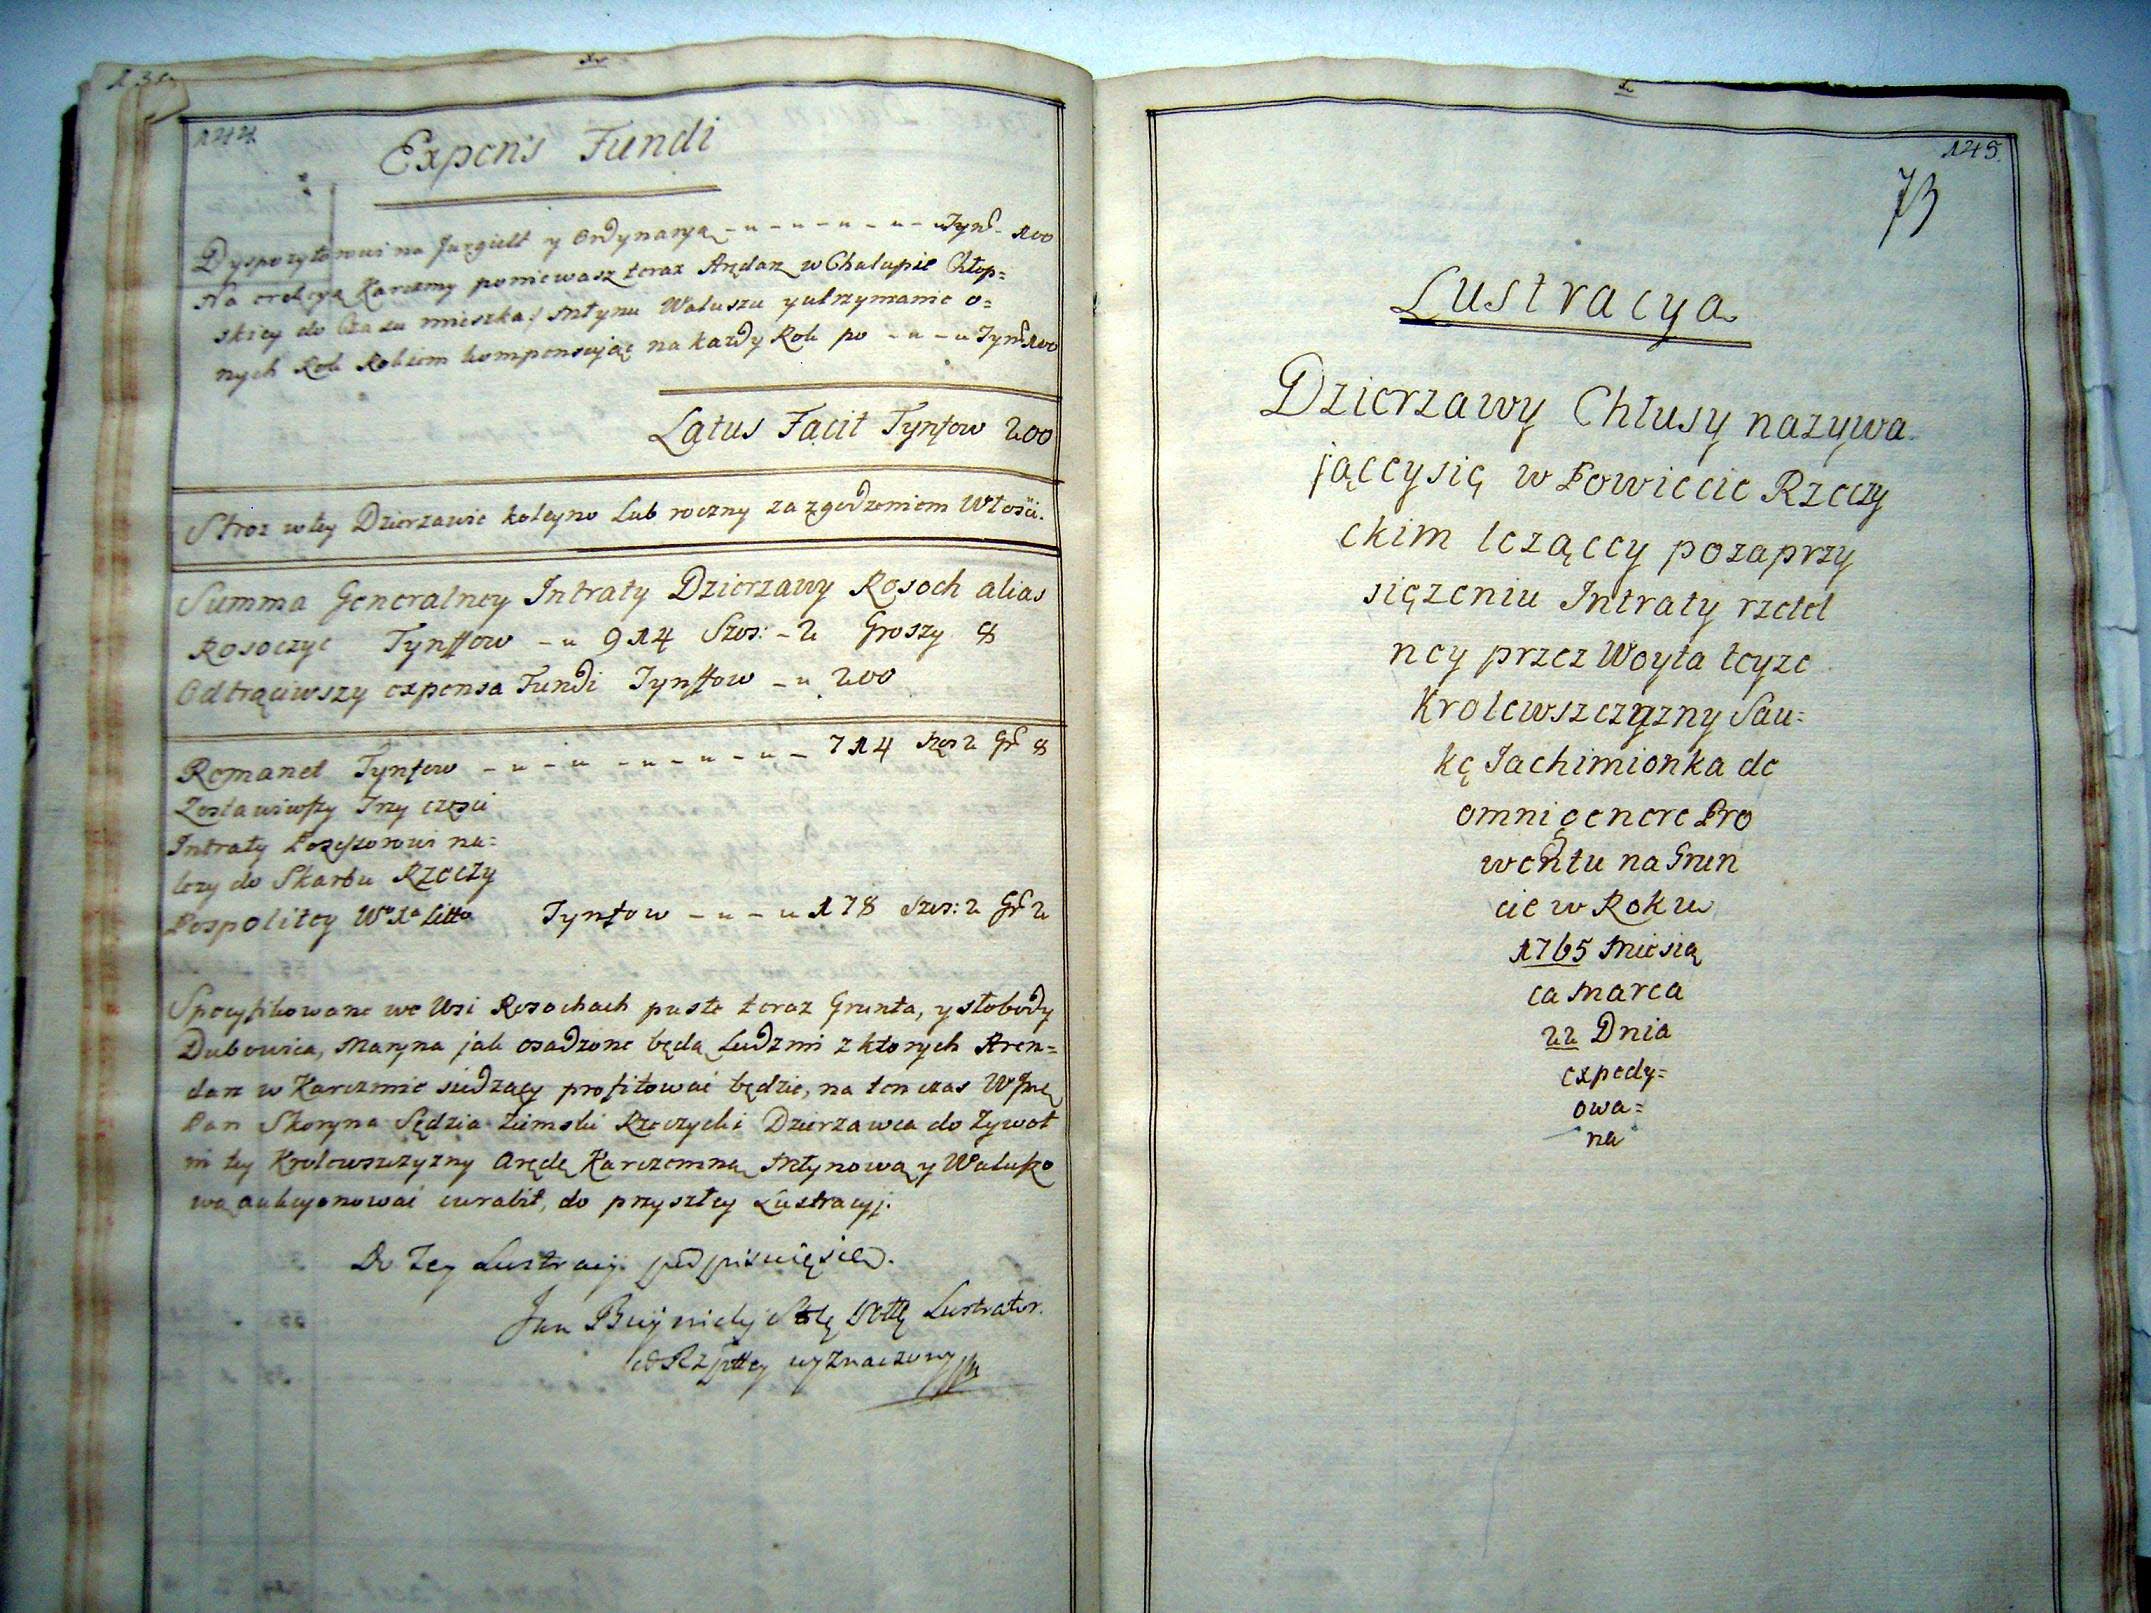 144
Expens Fundi
Dyspozytorowi na Jurgielt y Ordynaryą - „ - „ - „ - „ - „ Tynf. 100
Na erekcyą Karczmy poniewasz teraz Arędarz w Chałupie Chłop=
skiey do Czasu mieszka/ Młynu Waluszu y utrzymanie o=
nych Rok Rokiem kompensując na każdy Rok po - „ - „ Tynf. 100
Latus Facit Tynfow 200
Stroz w tey Dzierzawie koleyno Lub roczny za zgodzeniem Włości.
Summa Generalney Intraty Dzierzawy Rosoch alias
Rosoczyc Tynffow - „ 914 Szos: - 2 Groszy 8
Odtrąciwszy expensa Fundi Tynffow - „ 200
Romanet Tynfow - „ - „ - „ - „ - „ - 714 Szos 2 Gr 8
Zostawiwszy Trzy części
Intraty Possessorowi na=
lezy do Skarbu Rzeczy
Pospolitey W° X° Litt° Tynfow - „ - „ 178 Szos: 2 Gr 2
Specyfikowane we Wsi Rosochach puste teraz Grunta, y słobody
Dubowica, Maryna jak osadzone będą Ludzmi z ktorych Aren=
darz w Karczmie siedzący profitować będzie, na ten czas WJmć
Pan Skoryna Sędzia Ziemski Rzeczycki Dzierzawca do Zywot
ni tey Krolewszczyzny Arędę Karczemną Młynową y Waluszo
wą aukcyonować curabit, do przyszłey Lustracyj.
Do Tey Lustracyi podpisuię się.
Jan Lustrator.
od Rzpttey wyznaczony
145.
73
Lustracya
Dzierzawy Chłusy nazywa
jąceysię w Powiecie Rzeczy
ckim lezącey pozaprzy
siężeniu Intraty rzetel
ney przez Woyta teyze
Krolewszczyzny Sau=
kę Jachimionka de
omni genere Pro
wentu na Grun
cie w Roku
1765 Miesią
ca Marca
22 Dnia
expedy=
owa=
na